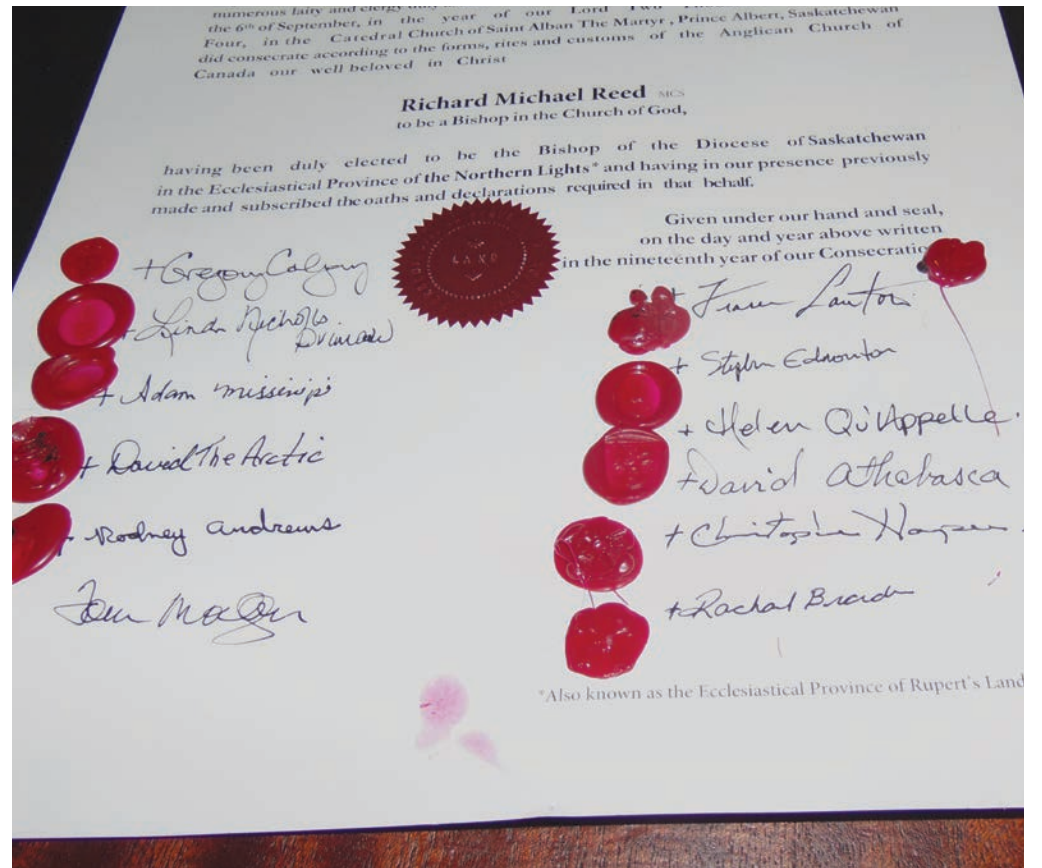 numerous laity and clergy
the 6th of September, in the year of our Lord Two
Four, in the Catedral Church of Saint Alban The Martyr , Prince Albert, Saskatchewan
did consecrate according to the forms, rites and customs of the Anglican Church of
Canada our well beloved in Christ
Richard Michael Reed MCS
to be a Bishop in the Church of God,
having been duly elected to be the Bishop of the Diocese of Saskatchewan
in the Ecclesiastical Province of the Northern Lights* and having in our presence previously
made and subscribed the oaths and declarations required in that behalf.
Given under our hand and seal,
on the day and year above written
in the nineteenth year of our Consecration
LAND
+Gregory Calgary
+ Linda Nicholls
Primate
+ Adam
+ David The Arctic
+ Rodney Andrews
+ Lawton
+ Stephen Edmonton
+ Helen Qu'Appelle.
+David Athabasca
+ Christopher Harper
+Rachael
*Also known as the Ecclesiastical Province of Rupert's Land